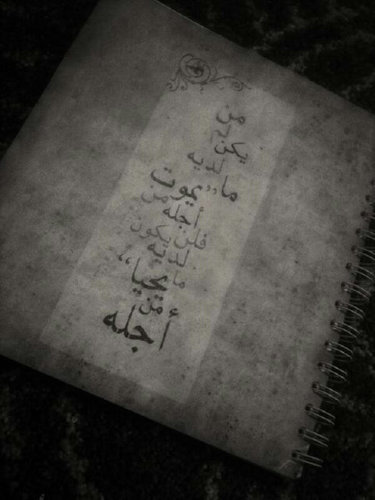 من
يكن
لديه
ما "يموت
من
أجله
فلن يكون
لديه
ما
يحيا"
من
أجله